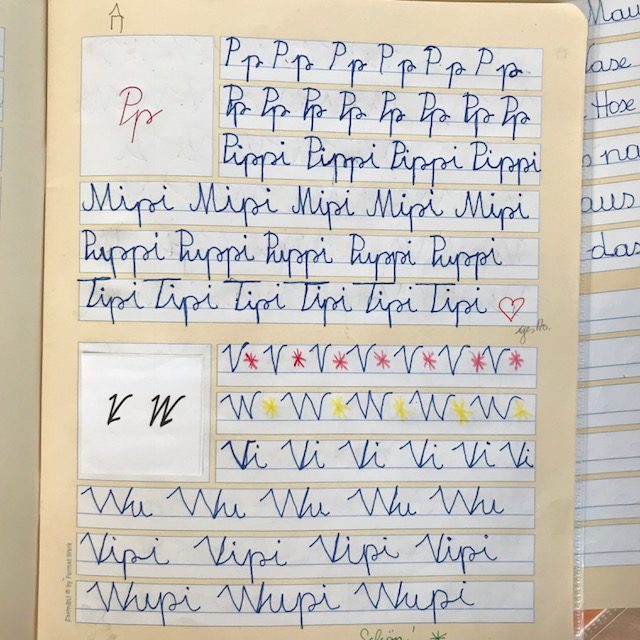 Pp
Pp Pp Pp Pp Pp Pp
Pp Pp Pp Pp Pp Pp Pp Pp
Pippi Pippi Pippi Pippi
Mipi Mipi Mipi Mipi Mipi
Puppi Puppi Puppi Puppi Puppi
Tipi Tipi Tipi Tipi Tipi Tipi
V W
V V V V V V V
W W W W W
Vi Vi Vi Vi Vi Vi
Wu Wu Wu Wu Wu
Vipi Vipi Vipi Vipi
Wupi Wupi Wupi Wupi
Schön!
Mau
ase
Hose
na
aus
das